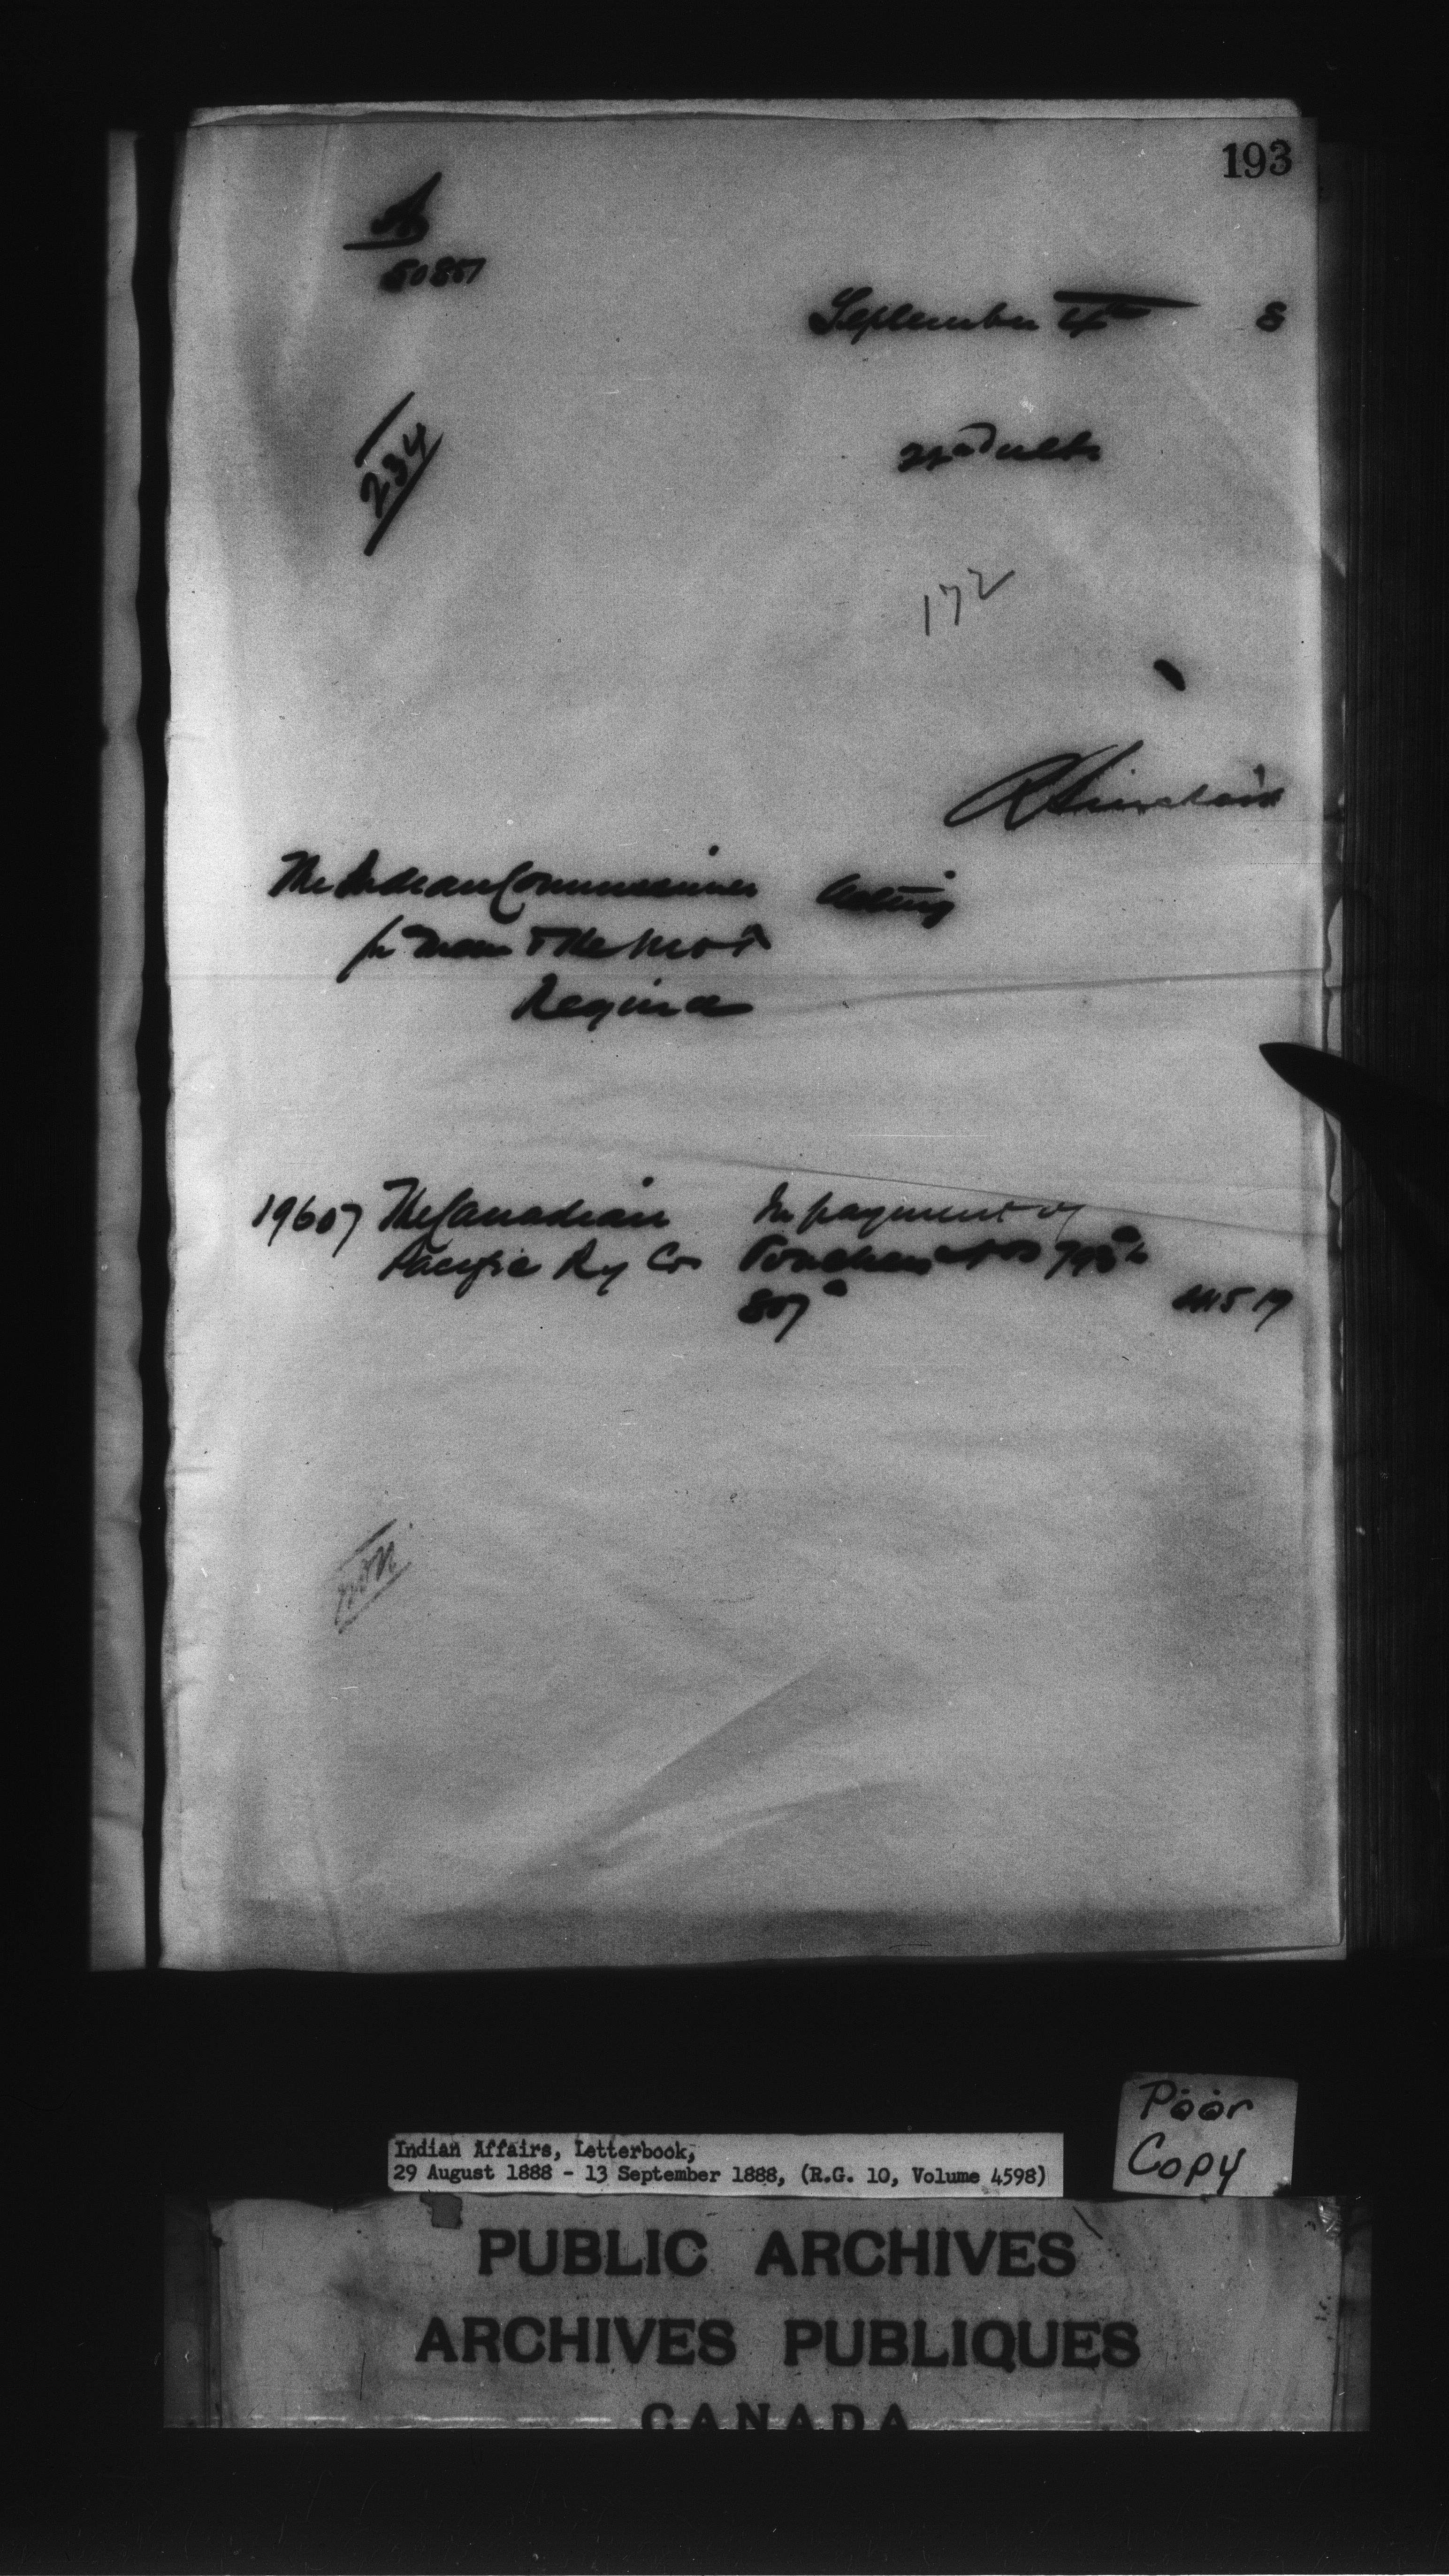 193
A
September 4th 8
234
172
R Sinclair
The Indian Commissioner Acting
for & the
Regina
19607 The Canadian In payment of
Pacific Ry Co Vouchers Nos
807a
Indian Affairs, Letterbook,
29 August 1888 - 13 September 1888, (R.G. 10, Volume 4598)
Poor
Copy
PUBLIC ARCHIVES
ARCHIVES PUBLIQUES
CANADA